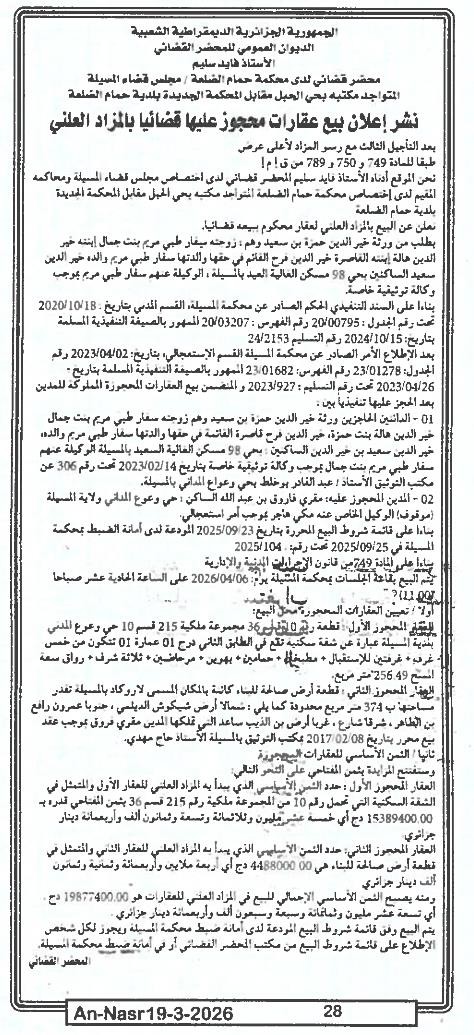 الجمهورية الجزائرية الديمقراطية الشعبية
الديوان العمومي للمحضر القضائي
الأستاذ فايد سليم
محضر قضائي لدى محكمة حمام الضلعة / مجلس قضاء المسيلة
المتواجد مكتبه بحي الحبل مقابل المحكمة الجديدة بلدية حمام الضلعة
نشر إعلان بيع عقارات محجوز عليها قضائيا بالمزاد العلني
بعد التأجيل الثالث مع رسو المزاد لأعلى عرض
طبقا للمادة 749 و 750 و 789 من ق إ م إ
نحن الموقع أدناه الأستاذ فايد سليم المحضر قضائي لدى اختصاص مجلس قضاء المسيلة ومحاكمه
المقيم لدى إختصاص محكمة حمام الضلعة المتواجد مكتبه بحي الحبل مقابل المحكمة الجديدة
بلدية حمام الضلعة
نعلن عن البيع بالمزاد العلني لعقار محكوم ببيعه قضائيا.
بطلب من ورثة خير الدين حمزة بن سعيد وهم : زوجته سيفار طبي مريم بنت جمال إبنته خير
الدين هالة إبنته القاصرة خير الدين فرح القائم في حقها والدتها سفار طبي مريم والده خير الدين
سعيد الساكنين بحي 98 مسكن الغالية العيد بالمسيلة : الوكيلة عنهم سفار طبي مريم بموجب
وكالة توثيقية خاصة.
بناءا على السند التنفيذي الحكم الصادر عن محكمة المسيلة، القسم المدني بتاريخ : 2020/10/18
تحت رقم الجدول: 20/00795 رقم الفهرس : 20/03207 الممهور بالصيغة التنفيذية المسلمة
بتاريخ : 2024/10/15 رقم التسليم 24/2153
بعد الإطلاع الأمر الصادر عن محكمة المسيلة القسم الإستعجالي، بتاريخ: 2023/04/02 رقم
الجدول: 23/01278 رقم الفهرس: 23/01682 الممهور بالصيغة التنفيذية المسلمة بتاريخ -
2023/04/26 تحت رقم التسليم : 2023/927 و المتضمن بيع العقارات المحجوزة المملوكة للمدين
بعد الحجز عليها تنفيذيا بين :
01 - الدائنين الحاجزين ورثة خير الدين حمزة بن سعيد وهم زوجته سفار طبي مريم بنت جمال
خير الدين هالة بنت حمزة، خير الدين فرح قاصرة القائمة في حقها والدتها سفار طبي مريم والده،
خير الدين سعيد بن خير الدين الساكنين : بحي 98 مسكن الغالية السعيد بالمسيلة الوكيلة عنهم
سفار طبي مريم بنت جمال بموجب وكالة توثيقية خاصة بتاريخ 2023/02/14 تحت رقم 306 عن
مكتب التوثيق الأستاذ / عبد القادر بوخلط بحي وعواع المدني بالمسيلة.
02 - المدين المحجوز عليه: مقري فاروق بن عبد الله الساكن : حي وعوع المدني ولاية المسيلة
(موقوف) الوكيل الخاص عنه مكي هاجر بموجب أمر استعجالي.
بناءا على قائمة شروط البيع المحررة بتاريخ 2025/09/23 المودعة لدى أمانة الضبط بمحكمة
المسيلة في 2025/09/25 تحت رقم: 2025/104.
بناءا على المادة 749 من قانون الإجراءات المدنية والإدارية
يتم البيع بقاعة الجلسات بمحكمة المسيلة يوم: 2026/04/06 على الساعة الحادية عشر صباحا
أولا / تعيين العقارات المحجوزة محل البيع:
العقار المحجوز الأول: قطعة رقم 10 قسم 36 مجموعة ملكية 215 قسم 10 حي وعوع المدني
بلدية المسيلة عبارة عن شقة سكنية تقع في الطابق الثاني درج 01 عمارة 01 تتكون من خمس
غرف + غرفتين للإستقبال + مطبخ + حمامين + بهوين + مرحاضين + ثلاثة شرف + رواق سعة
المسح 256.49 متر مربع.
العقار المحجوز الثاني : قطعة أرض صالحة للبناء كائنة بالمكان المسمى لاروكاد بالمسيلة تقدر
مساحتها ب 374 متر مربع محدودة كما يلي : شمالا أرض شيكوش الديلمي ، جنوبا عمرون رافع
بن الطاهر ، شرقا شارع ، غربا أرض بن الذيب ساعد التي تملكها المدين مقري فروق بموجب عقد
بيع محرر بتاريخ 2017/02/08 بمكتب التوثيق بالمسيلة الأستاذ حاج مهدي.
ثانيا / الثمن الأساسي للعقارات المحجوزة
وستفتتح المزايدة بثمن المفتاحي على النحو التالي:
العقار المحجوز الأول : حدد الثمن الأساسي الذي يبدأ به المزاد العلني للعقار الأول والمتمثل في
الشقة السكنية التي تحمل رقم 10 من المجموعة ملكية رقم 215 قسم 36 بثمن المفتاحي قدره بـ
15389400.00 دج أي خمسة عشر مليون وثلاثمائة وتسعة وثمانون ألف وأربعمائة دينار
جزائري.
العقار المحجوز الثاني: حدد الثمن الأساسي الذي يبدأ به المزاد العلني للعقار الثاني والمتمثل في
قطعة أرض صالحة للبناء هي 4488000.00 دج أي أربعة ملايين وأربعمائة وثمانية وثمانون
ألف دينار جزائري
ومنه يصبح الثمن الأساسي الإجمالي للبيع في المزاد العلني للعقارات هو 19877400.00 دج .
أي تسعة عشر مليون وثمانمائة وسبعة وسبعون ألف وأربعمائة دينار جزائري .
يتم البيع وفق قائمة شروط البيع المودعة لدى أمانة ضبط محكمة المسيلة ويجوز لكل شخص
الإطلاع على قائمة شروط البيع من مكتب المحضر القضائي أو في أمانة ضبط محكمة المسيلة.
المحضر القضائي
An-Nasr19-3-2026
28